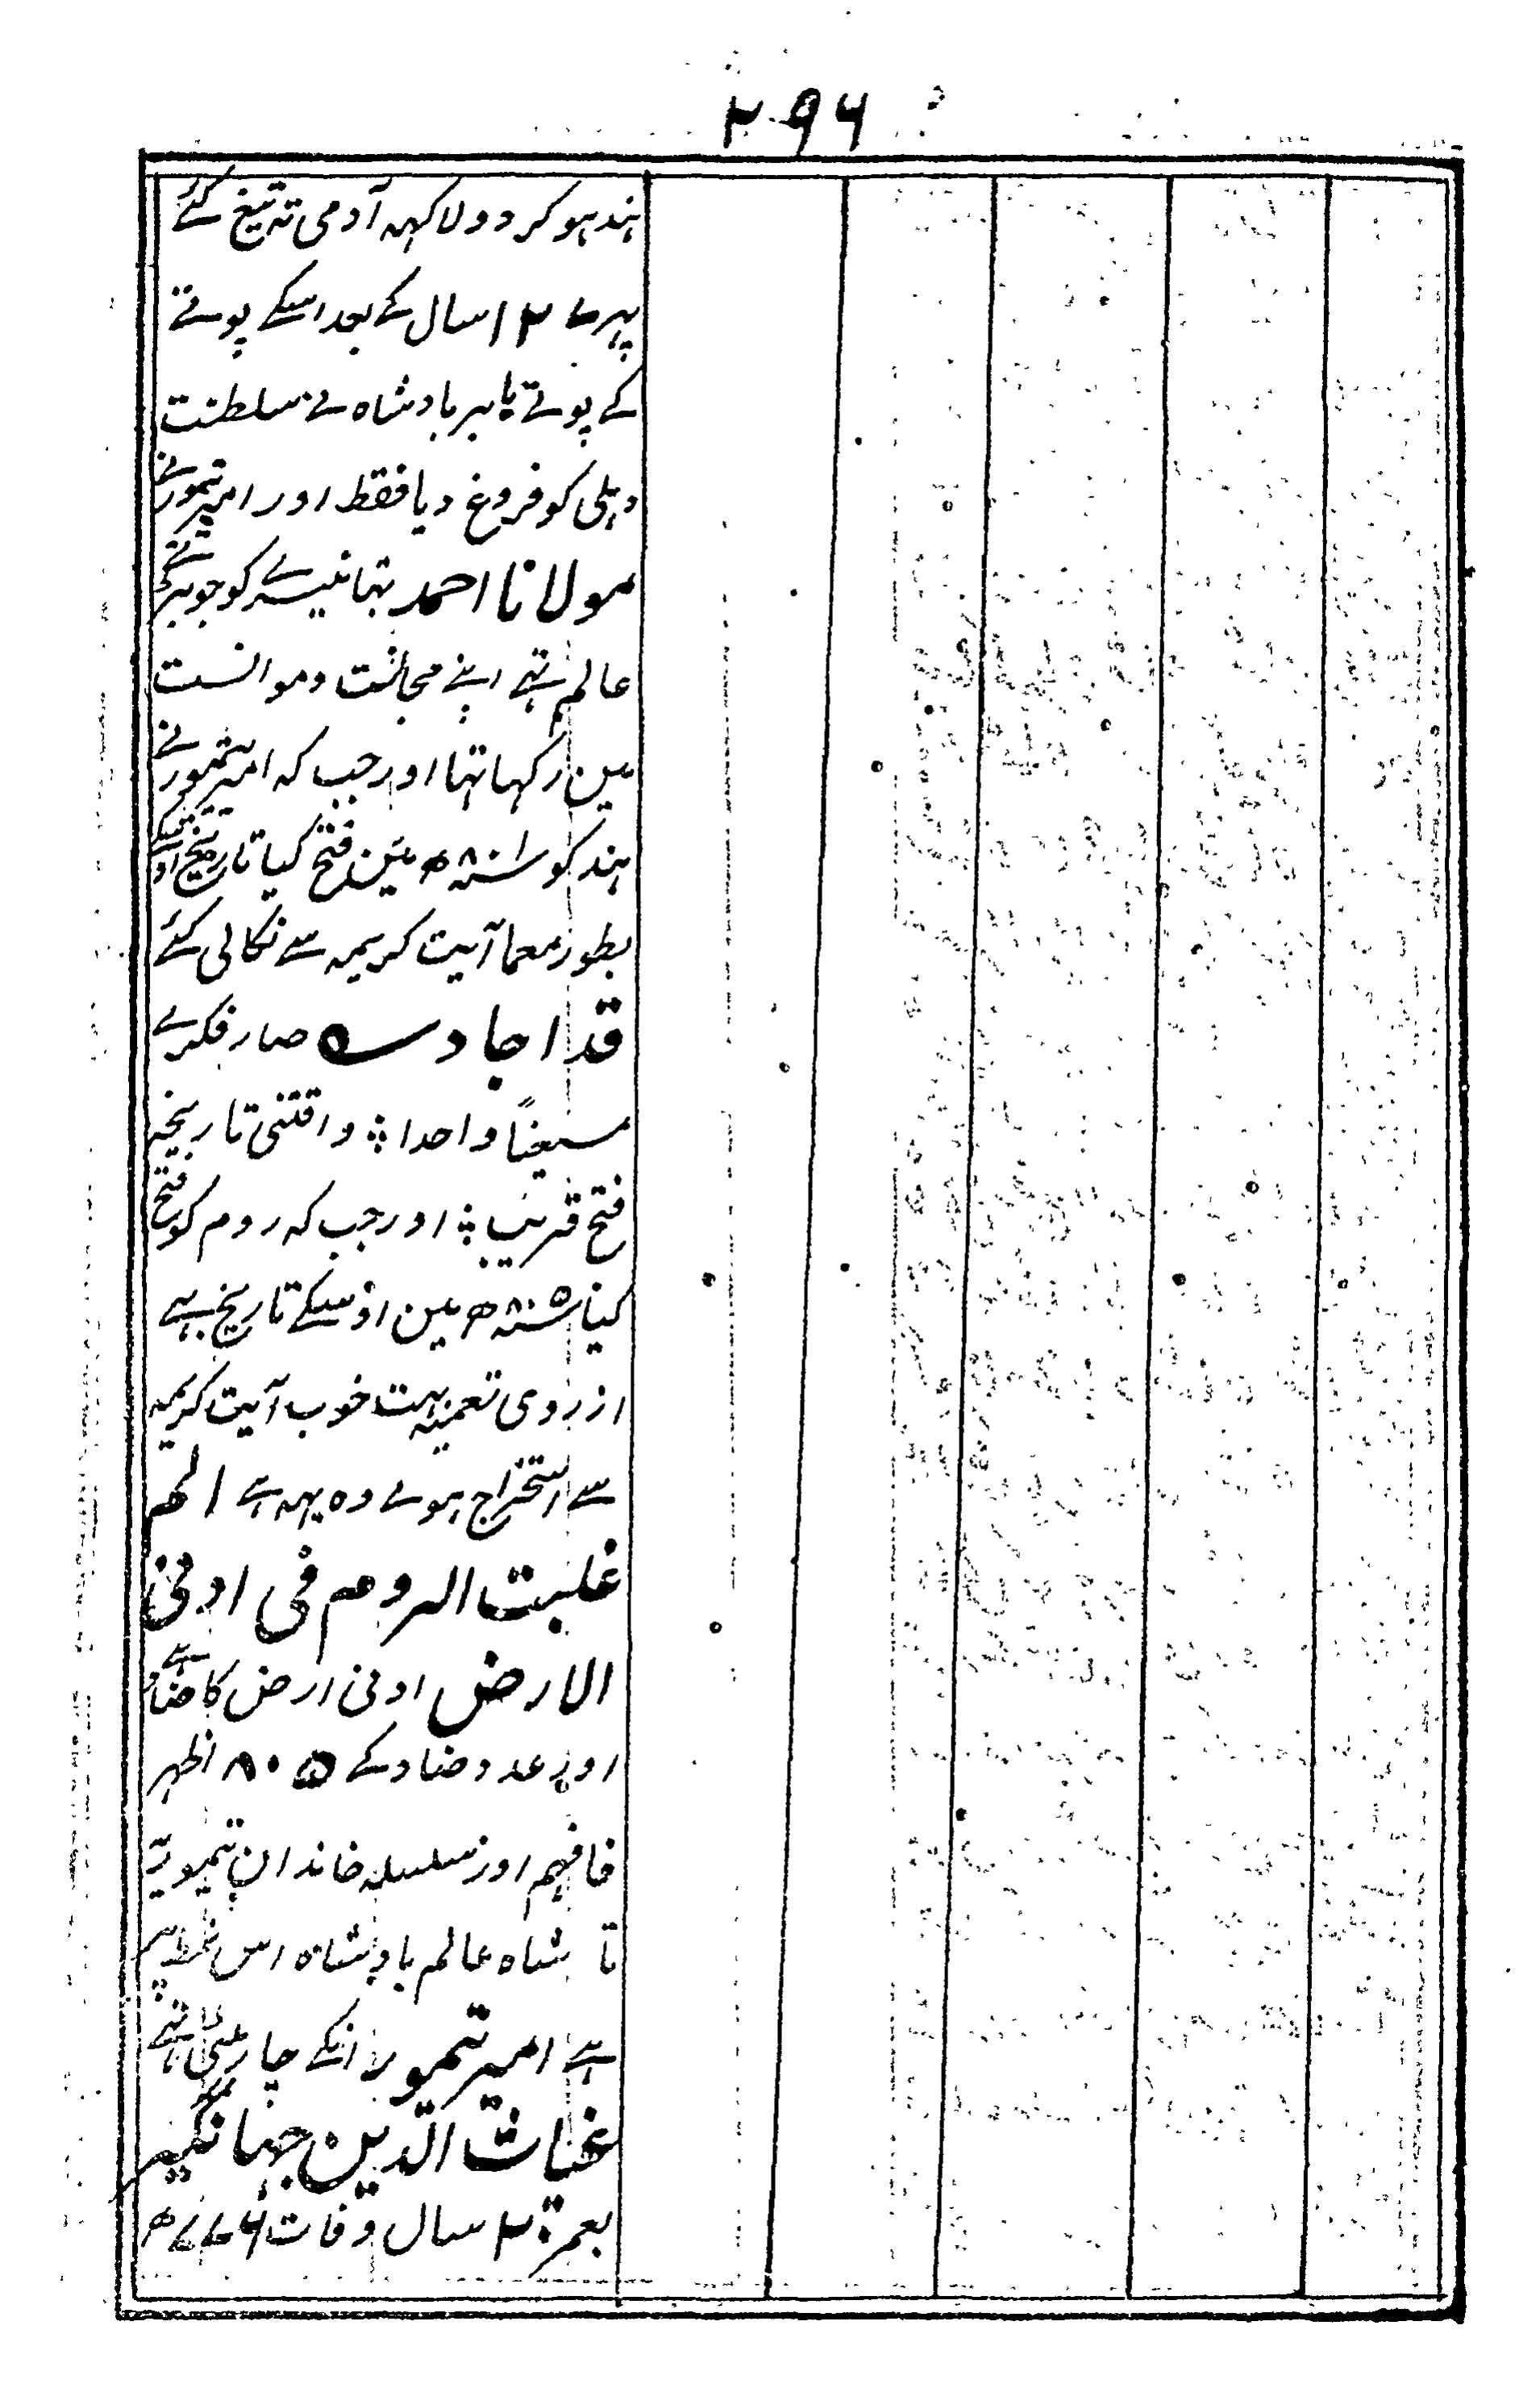 ۲۹۶
ہند ہو کر دو لاکہہ آدمی تہ تیغ کئے
پہر ۱۲۷ سال کے بعد اسکے پوتے
کے پوتے بابر بادشاہ نے سلطنت
دہلی کو فروغ دیا فقط اور امیر تیمور نے
مولانا احمد تہانیسرے کو جو بڑے
عالم تہے اپنے مجالست و موانست
مین رکہا تہا اور جب کہ امیر تیمور نے
ہند کو سنہ ۸۰۱ھ مین فتح کیا تاریخ اوسکے
بطور معما آیت کریمہ سے نکالی گئے
قد اجاد صار فکرے
سیفاً واحدا ؞ واقتنی تاریخہ
فتح قریب ؞ اور جب کہ روم کو فتح
کیا سنہ ۸۰۵ھ مین اوسکے تاریخ ہے
از روی تعمیہ بہت خوب آیت کریمہ
سے استخراج ہوے وہ یہہ ہے الم
غلبت الروم فی ادنی
الارض ادنی ارض کا ضاد ہے
اور عدد ضاد کے ۸۰۵ اظہر
فافہم اور سلسلہ خاندان تیموریہ
تا شاہ عالم بادشاہ اس نمط پر
ہے امیر تیمور انکے چار بیٹے تہے
غیاث الدین جہانگیر
بعمر ۲۰ سال وفات ۷۷۶ھ